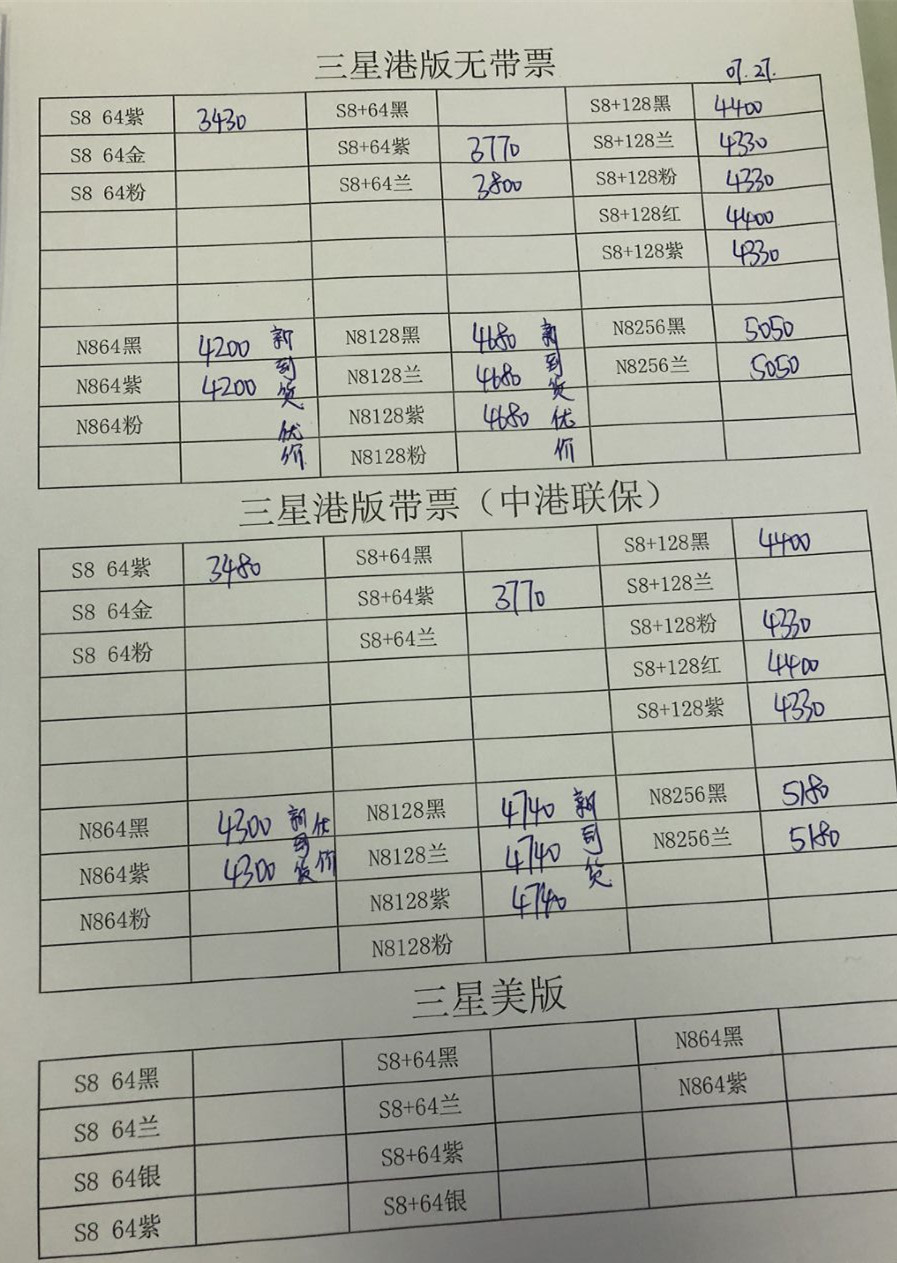 三星港版无带票 07.27.
S8 64紫 3430 S8+64黑 S8+128黑 4400
S8 64金 S8+64紫 3770 S8+128兰 4330
S8 64粉 S8+64兰 3800 S8+128粉 4330
S8+128红 4400
S8+128紫 4330
N864黑 4200 新到货优价 N8128黑 4680 新到货优价 N8256黑 5050
N864紫 4200 N8128兰 4680 N8256兰 5050
N864粉 N8128紫 4680
N8128粉
三星港版带票（中港联保）
S8 64紫 3480 S8+64黑 S8+128黑 4400
S8 64金 S8+64紫 3770 S8+128兰
S8 64粉 S8+64兰 S8+128粉 4330
S8+128红 4400
S8+128紫 4330
N864黑 4300 新到货优价 N8128黑 4740 新到货 N8256黑 5180
N864紫 4300 N8128兰 4740 N8256兰 5180
N864粉 N8128紫 4740
N8128粉
三星美版
S8 64黑 S8+64黑 N864黑
S8 64兰 S8+64兰 N864紫
S8 64银 S8+64紫
S8 64紫 S8+64银